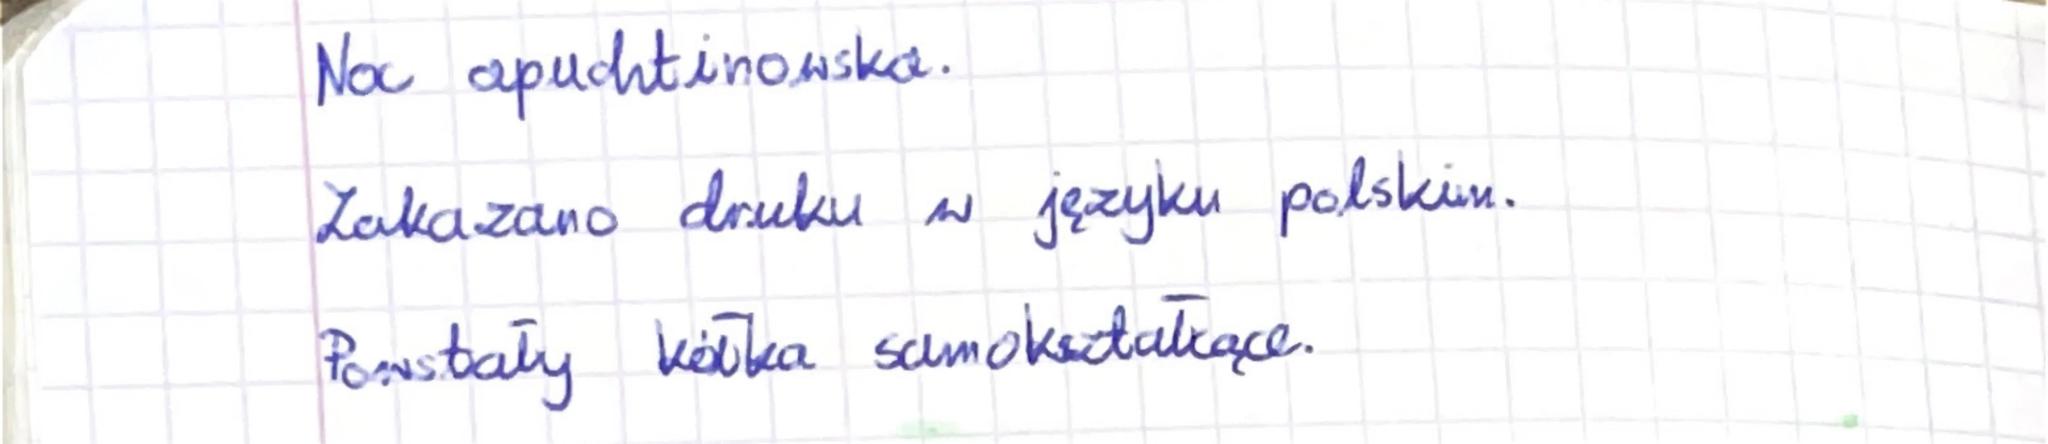 Noc apuchtinowska.
Zakazano druku w języku polskim.
Powstały kółka samokształcące.